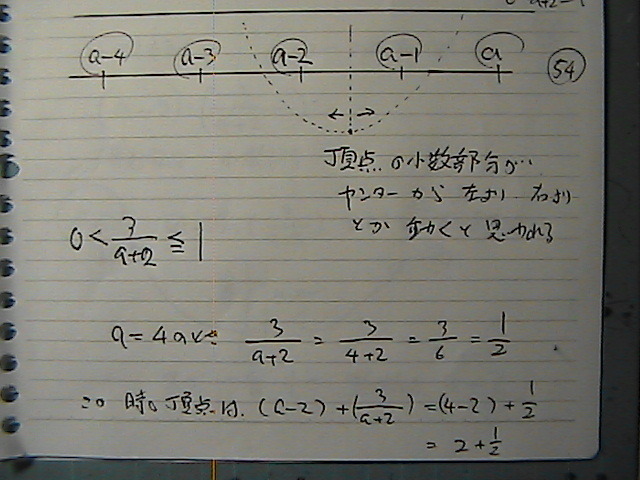 a-4 a-3 a-2 a-1 a 54
頂点の小数部分が…
センターから 左より 右より
とか 動くと思われる
0 < 3/(a+2) ≦ 1
a=4のとき 3/(a+2) = 3/(4+2) = 3/6 = 1/2
この時の頂点は. (a-2)+(3/(a+2)) = (4-2)+1/2
= 2+1/2